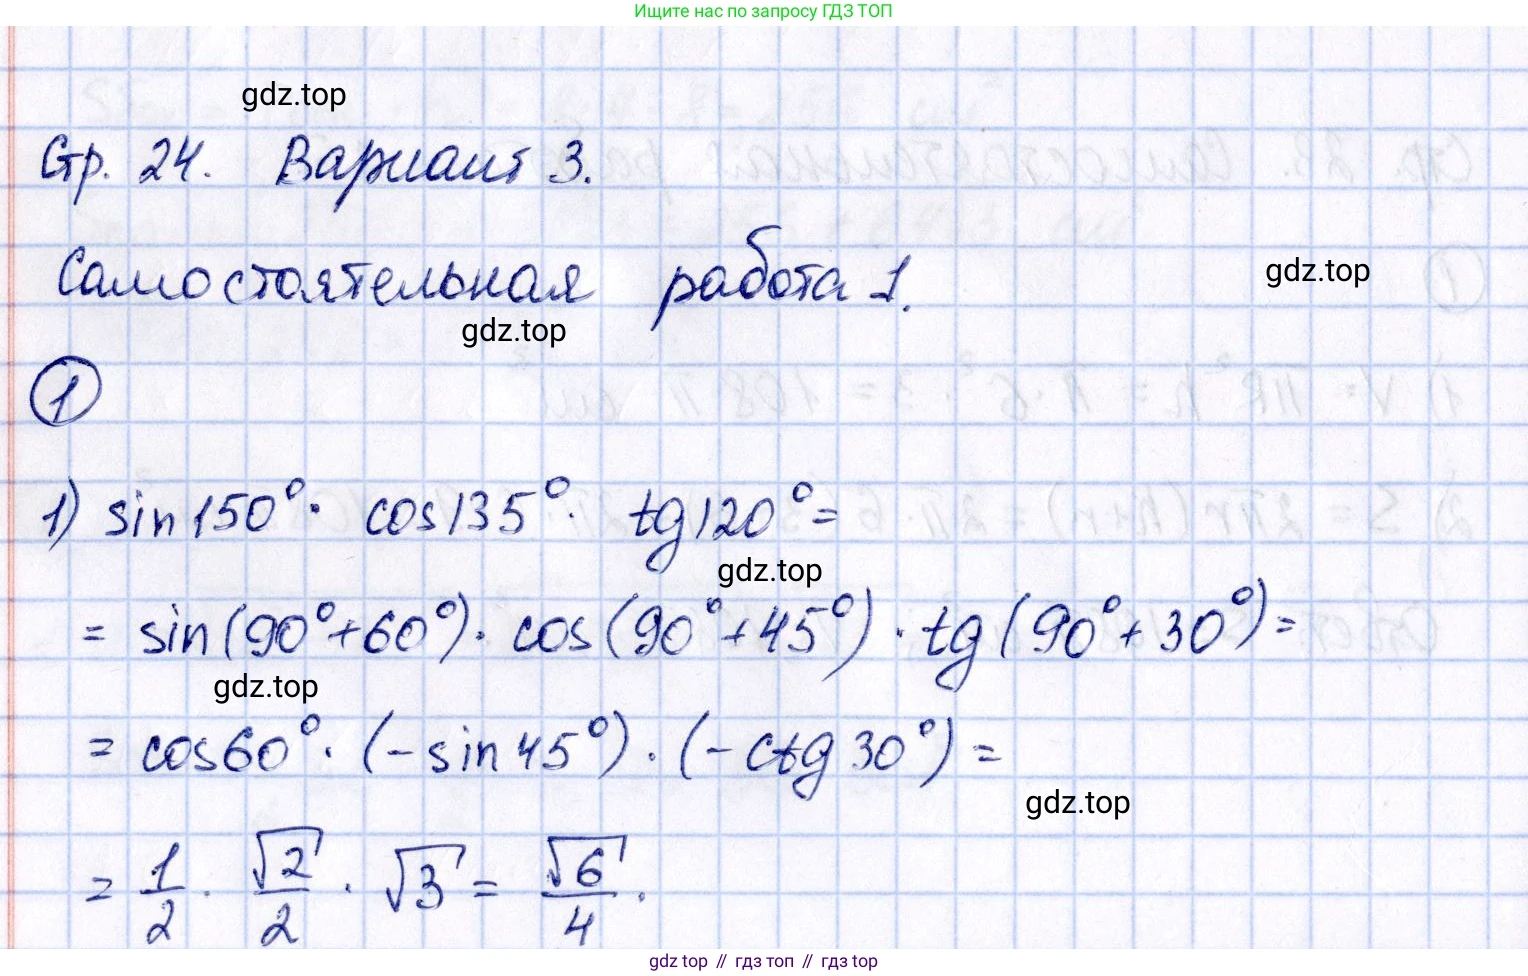 Ищите нас по запросу ГДЗ ТОП
gdz.top
Стр. 24. Вариант 3.
Самостоятельная работа 1.
gdz.top
gdz.top
1
1) sin150°· cos135°· tg120°=
gdz.top
= sin(90°+60°)· cos(90°+45°)· tg(90°+30°)=
gdz.top
= cos60°· (-sin45°)· (-ctg30°)=
gdz.top
= 1/2 · √2/2 · √3 = √6/4.
gdz top // гдз топ // гдз top